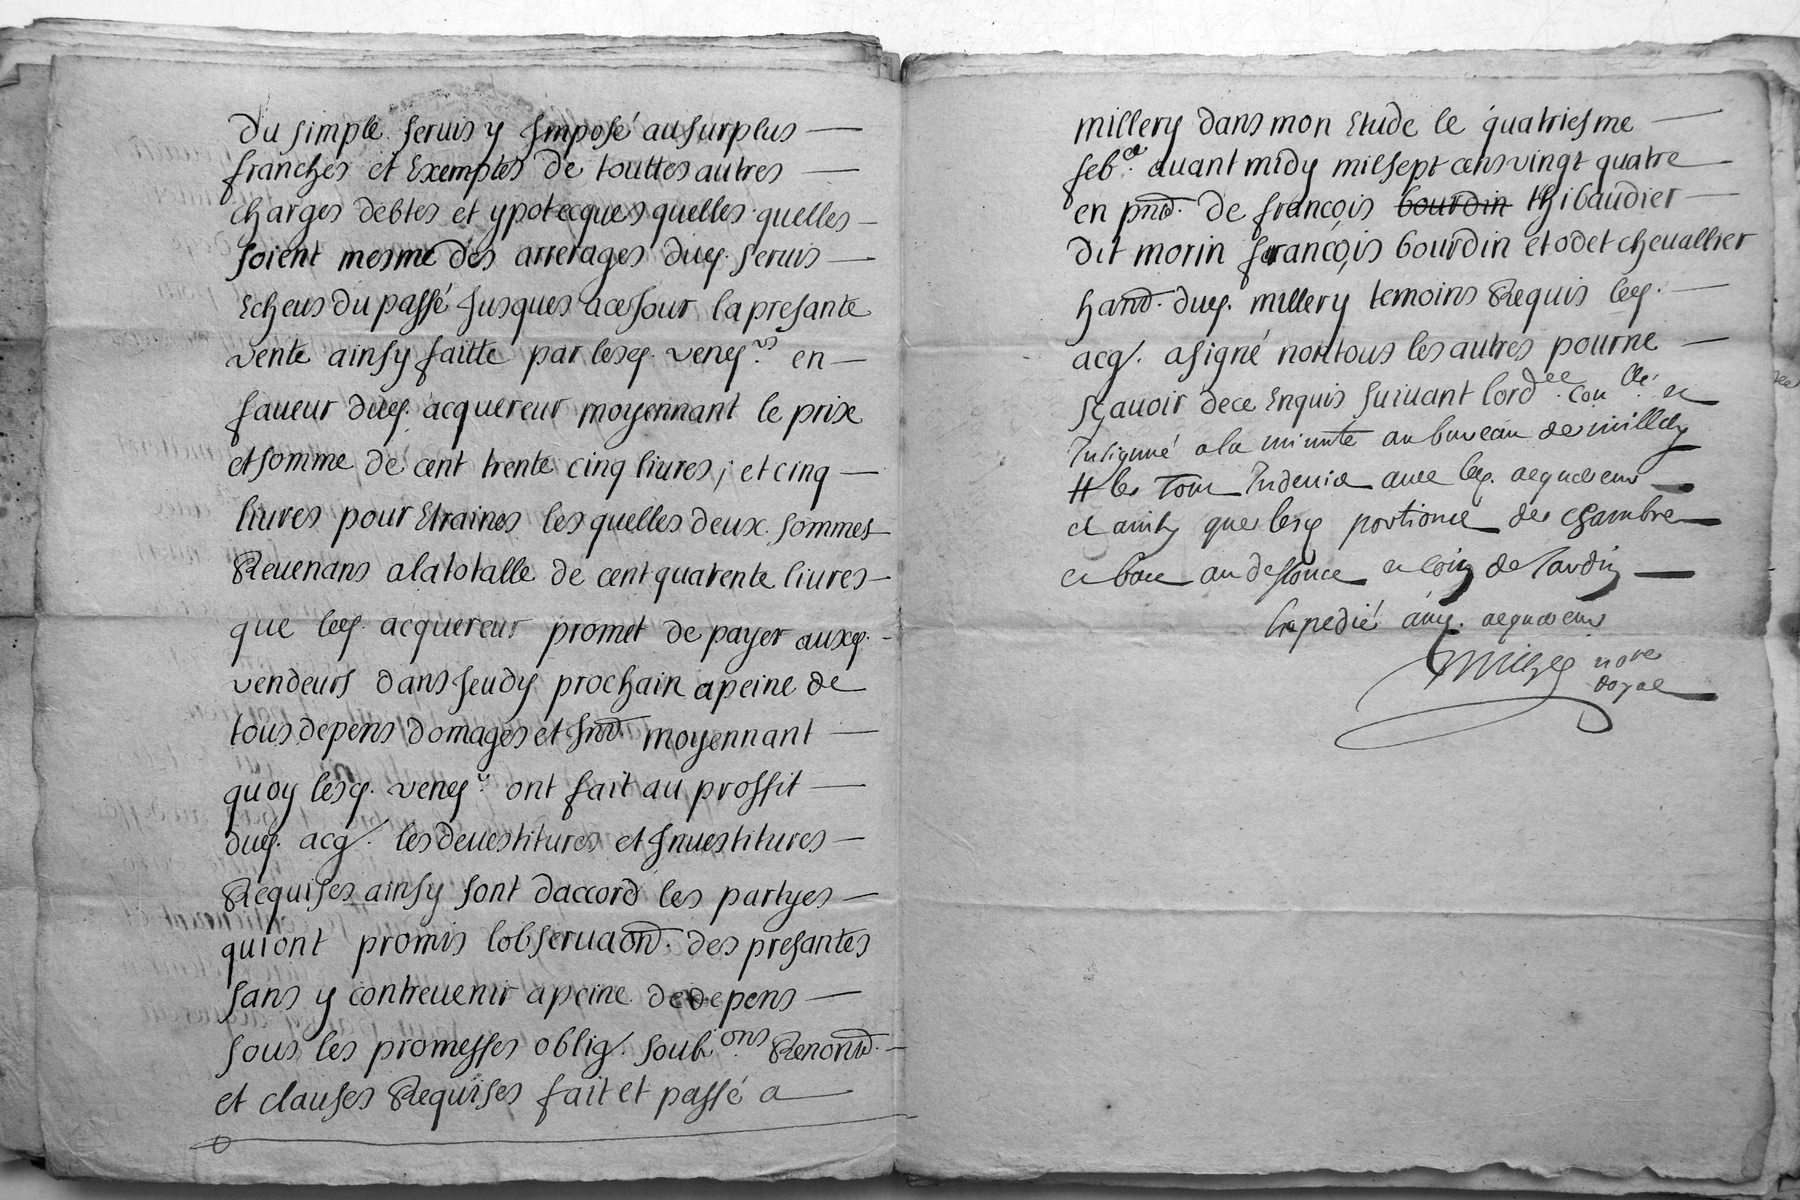 Du simple servis y Imposé ausurplus
franches et Exemptes de touttes autres
charges debtes et ypotecques quelles quelles
soient mesme des arrerages duq. servis
Echeus du passé Jusques a ce Jour la presante
vente ainsy faitte par lesq. veneq.rs en
faveur duq. acquereur moyennant le prix
et somme de cent trente cinq livres, et cinq
livres pour Etraines les quelles deux sommes
Revenans a la totalle de cent quarente livres
que leq. acquereur promet de payer auxq.
vendeurs dans Jeudy prochain a peine de
tous depens domages et Intd. moyennant
quoy lesq. veneq.rs ont fait au proffit
duq. acq. les devestitures et Investitures
Requises ainsy sont daccord les partyes
qui ont promis lobservaond. des presantes
sans y contrevenir a peine de depens
sous les promesses oblig. soub.ons Renond.
et clauses Requises fait et passé a
millery dans mon Etude le quatriesme
feb.er avant midy mil sept cens vingt quatre
en pntd. de francois bourdin thibaudier
dit morin francois bourdin et odet chevallier
hand. duq. millery temoins Requis leq.
acq. a signé non tous les autres pour ne
sçavoir de ce Enquis suivant lord.ce Con.llé et
Insignué a la minutte au bureau de millery
# les Tous Indevis avec leq. acquereur
et ainsy que lesq portions de chambre
et au dessous et coin de Jardin
Expedié auq. acquereur
nore
Royal